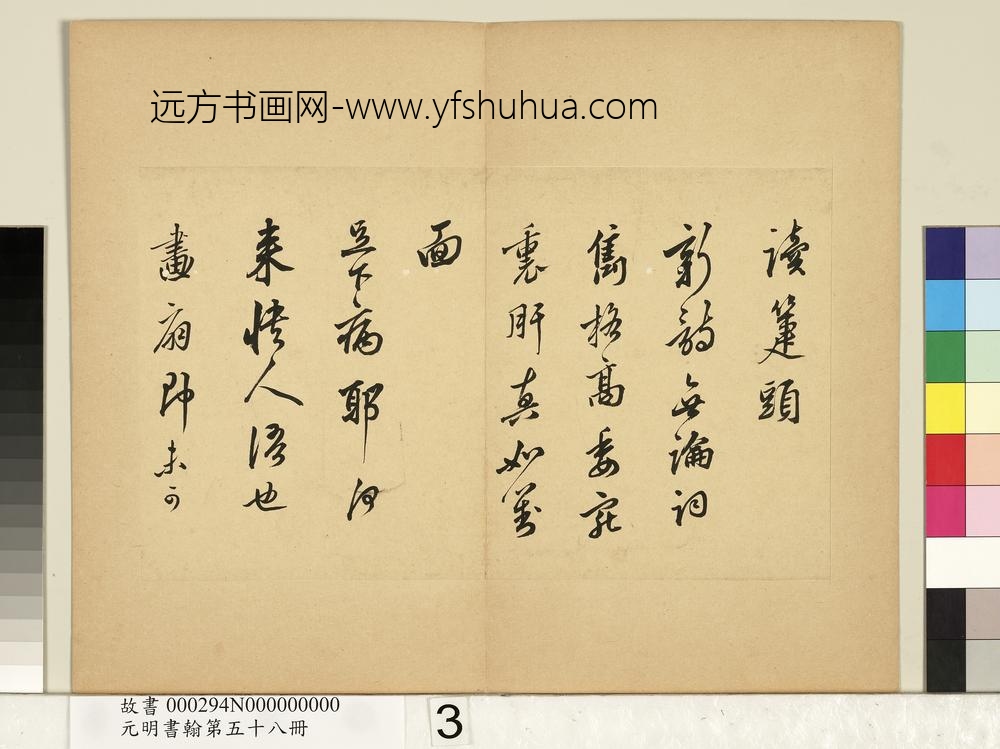 远方书画网-www.yfshuhua.com
讀箑頭
新詩無論詞
雋格高委宛
肝真如對
面
足下病耶何
来快人語也
畫扇即未可
故書 000294N000000000
元明書翰第五十八冊
3